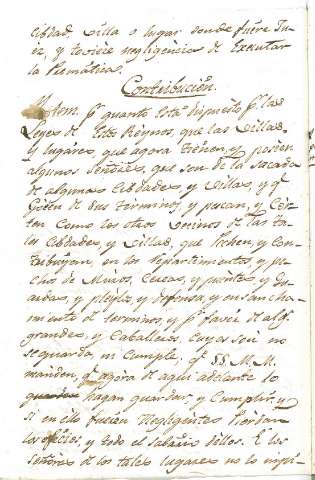 cibdad, villa o lugar donde fuere Ju
ez, y toviere negligencia de Executar
la Premática.
Contribución.
Ytem. pr quanto está dispuesto pr las
Leyes de estos Reynos, que las Villas,
y lugares, que agora tienen, y poseen
algunos Señores, que son de la sacada
de algunas Cibdades, y Villas, y qe
Gocen de sus términos, y pescan, y Cor
ten Como los otros vecinos de las ta
les Cibdades, y Villas, que Pechen, y Con
tribuyan, en los Repartimientos, y pe
chos de Muros, Cercas, y puentes, y Gu
ardas, y pleytos, y defensa, y ensancha
miento de terminos, y pr favor de algs
grandes, y Caballeros, Cuyos son no
se guarda, ni Cumple; qe SS. M. M.
manden, qe agora de aqui adelante lo
hagan guardar, y Cumplir, y
si en ello fueren Negligentes Pierdan
los oficios, y todo el salario dellos. E los
señores de los tales lugares no lo impi-